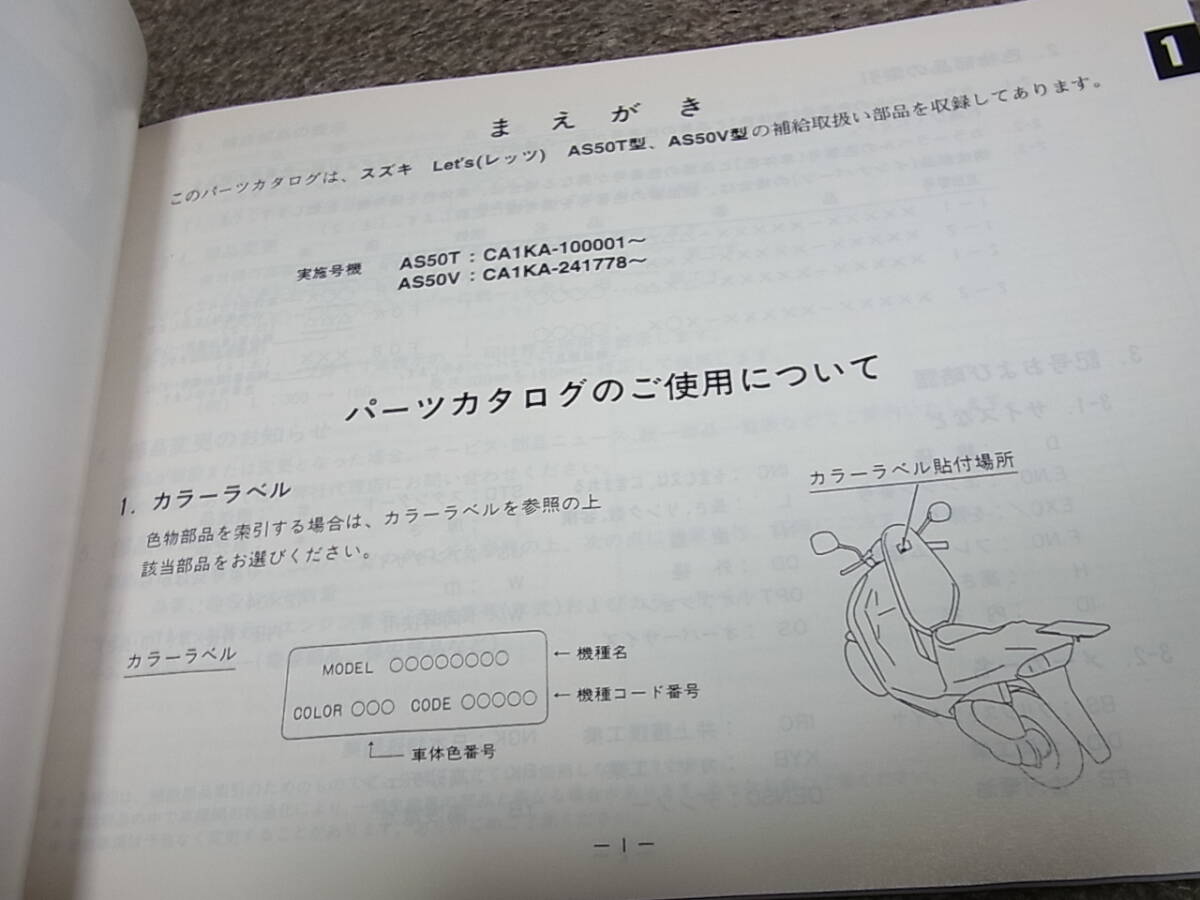 1
まえがき
このパーツカタログは、スズキ Let's(レッツ) AS50T型、AS50V型の補給取扱い部品を収録してあります。
実施号機 AS50T：CA1KA-100001～
AS50V：CA1KA-241778～
パーツカタログのご使用について
1. カラーラベル
色物部品を索引する場合は、カラーラベルを参照の上
該当部品をお選びください。
カラーラベル貼付場所
カラーラベル
MODEL ○○○○○○○○ ← 機種名
COLOR ○○○ CODE ○○○○○ ← 機種コード番号
↑ 車体色番号
― 1 ―